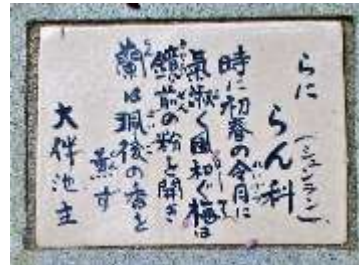 らに
らん科
(シュンラン)
時に初春の令月にして
氣淑く風和ぐ梅は
鏡前の粉と開き
蘭は珮後の香と
薫ず
大伴池主